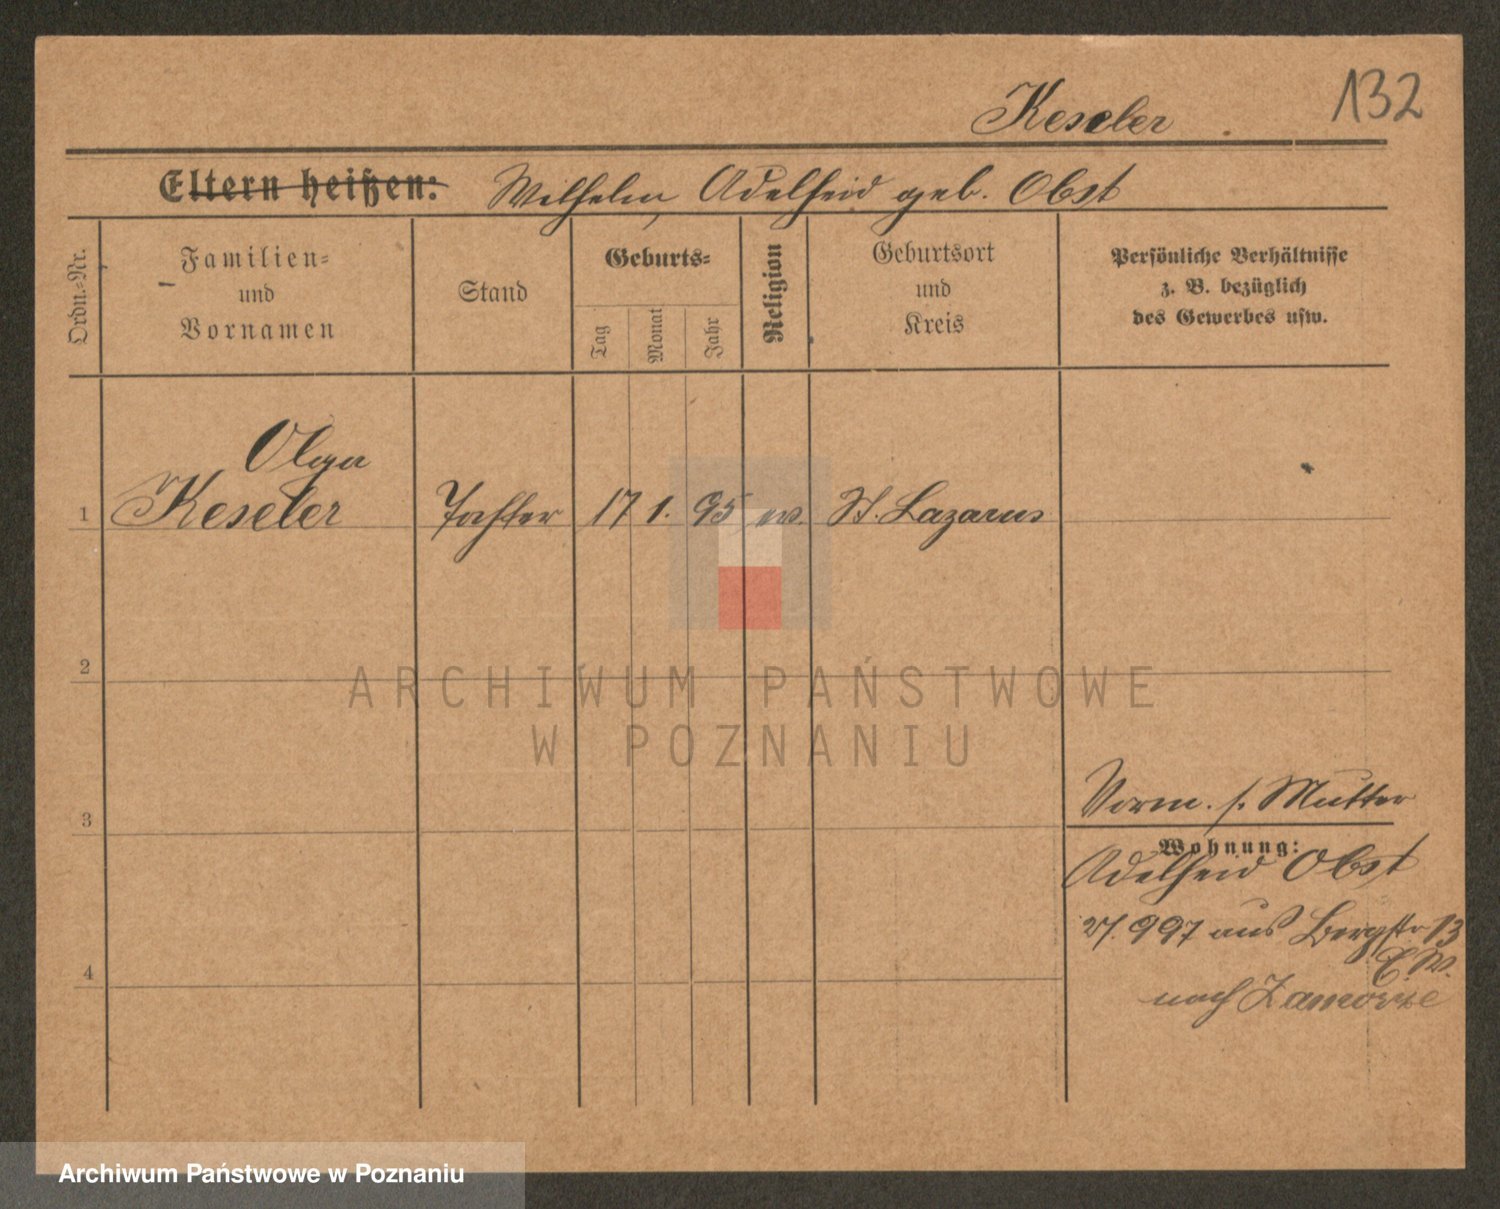 132
Keseler
Eltern heißen: Wilhelm, Adelheid geb. Obst
Ordn.-Nr.
Familien-
und
Vornamen
Stand
Geburts-
Tag
Monat
Jahr
Religion
Geburtsort
und
Kreis
Persönliche Verhältnisse
z. B. bezüglich
des Gewerbes usw.
Olga
1 Keseler Tochter 17 1. 95 ev. St. Lazarus
2
3
4
Vorm. s. Mutter
Wohnung:
Adelheid Obst
27.9 97 aus Bergstr 13
nach
ARCHIWUM PAŃSTWOWE
W POZNANIU
Archiwum Państwowe w Poznaniu